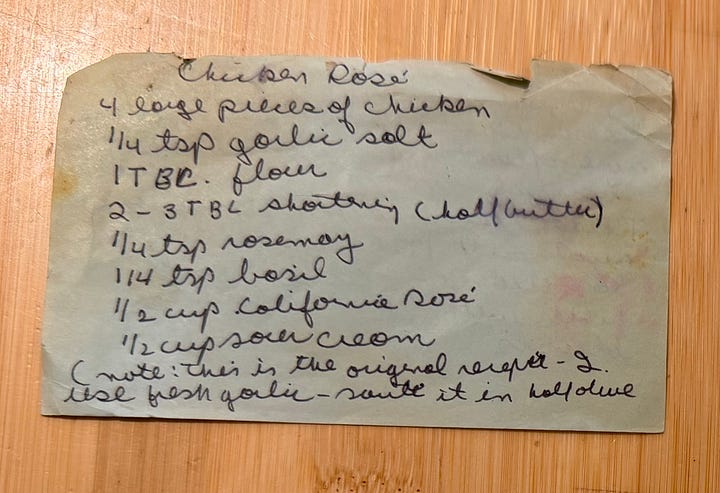 Chicken Rosé
4 large pieces of chicken
1/4 tsp garlic salt
1 TBL. flour
2-3 TBL shortening (half butter)
1/4 tsp rosemary
1/4 tsp basil
1/2 cup California rosé
1/2 cup sour cream
(note: this is the original recipe - I
use fresh garlic - sauté it in half olive